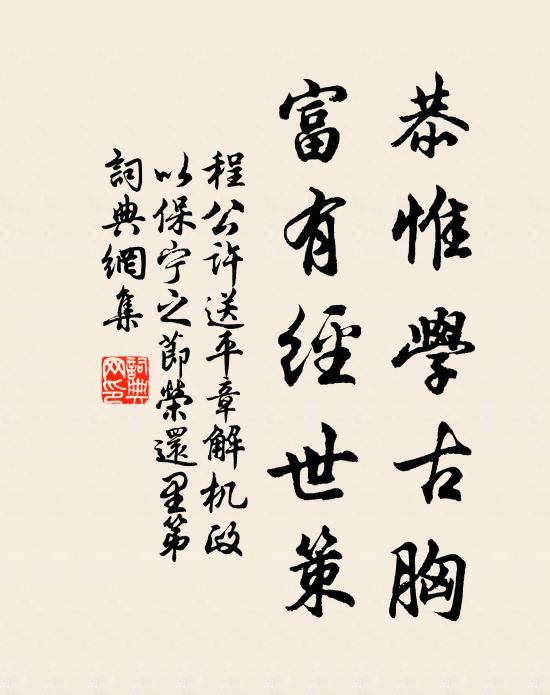 恭惟學古胸
富有經世策
程公许送平章解机政
以保宁之節榮還里第
詞典網集
詞典
网印